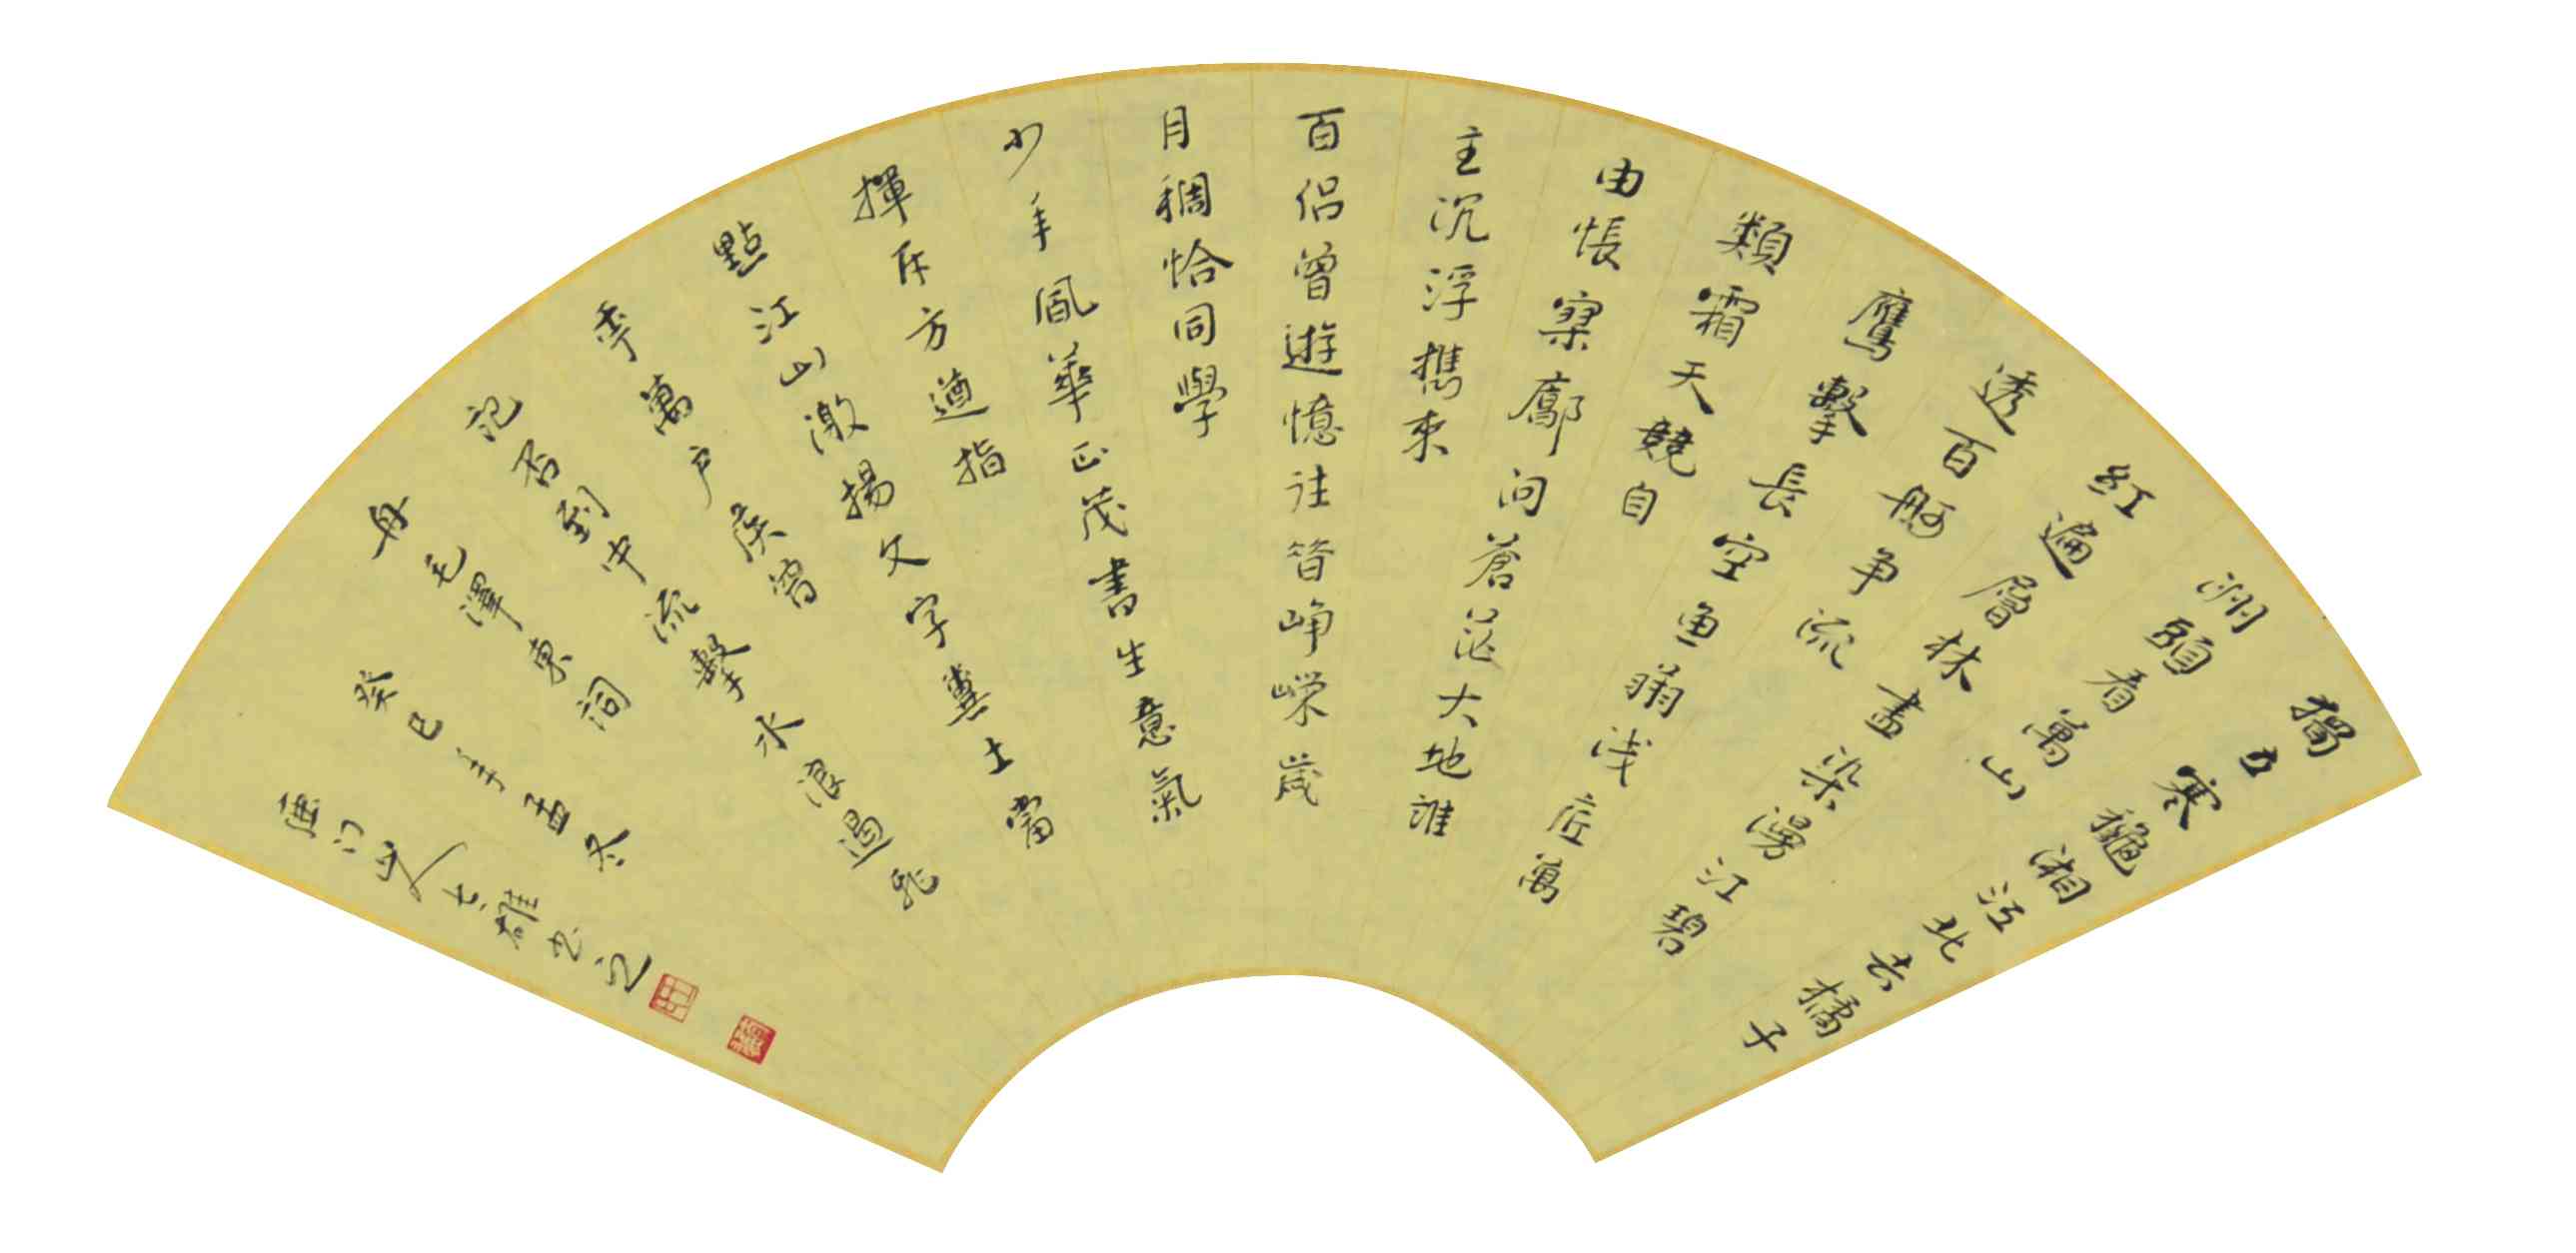 獨立寒龝湘江北去橘子
洲頭看萬山
紅遍層林盡染漫江碧
透百舸争流
鷹擊長空鱼翔浅底萬
類霜天競自
由悵寥廓问蒼茫大地誰
主沉浮攜来
百侣曾遊憶往昔峥嵘歲
月稠恰同學
少年風華正茂書生意氣
揮斥方遒指
點江山激揚文字糞土當
季萬户侯曾
記否到中流擊水浪遏飛
舟 毛澤東詞
癸巳年孟冬
山人